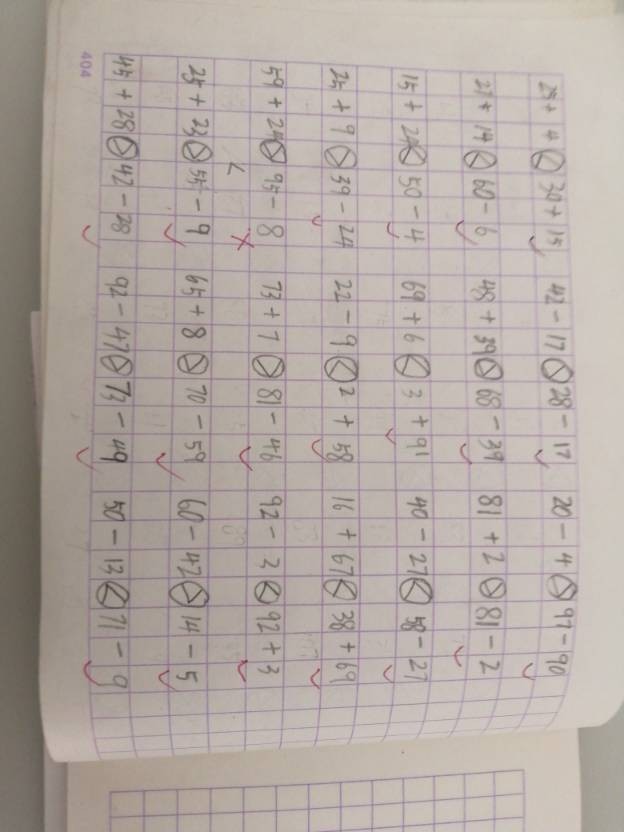 29 + 4 < 30 + 15 42 - 17 > 28 - 17 20 - 4 > 97 - 90
27 + 17 < 60 - 6 48 + 39 > 68 - 39 81 + 2 > 81 - 2
15 + 24 < 50 - 4 69 + 6 < 3 + 91 40 - 27 < 58 - 27
25 + 9 > 39 - 24 22 - 9 < 2 + 58 16 + 67 < 38 + 69
59 + 24 > 95 - 8 73 + 7 > 81 - 46 92 - 3 < 92 + 3
<
25 + 23 > 55 - 9 65 + 8 > 70 - 59 60 - 42 > 14 - 5
45 + 28 > 42 - 28 92 - 47 > 73 - 49 50 - 13 < 71 - 9
404